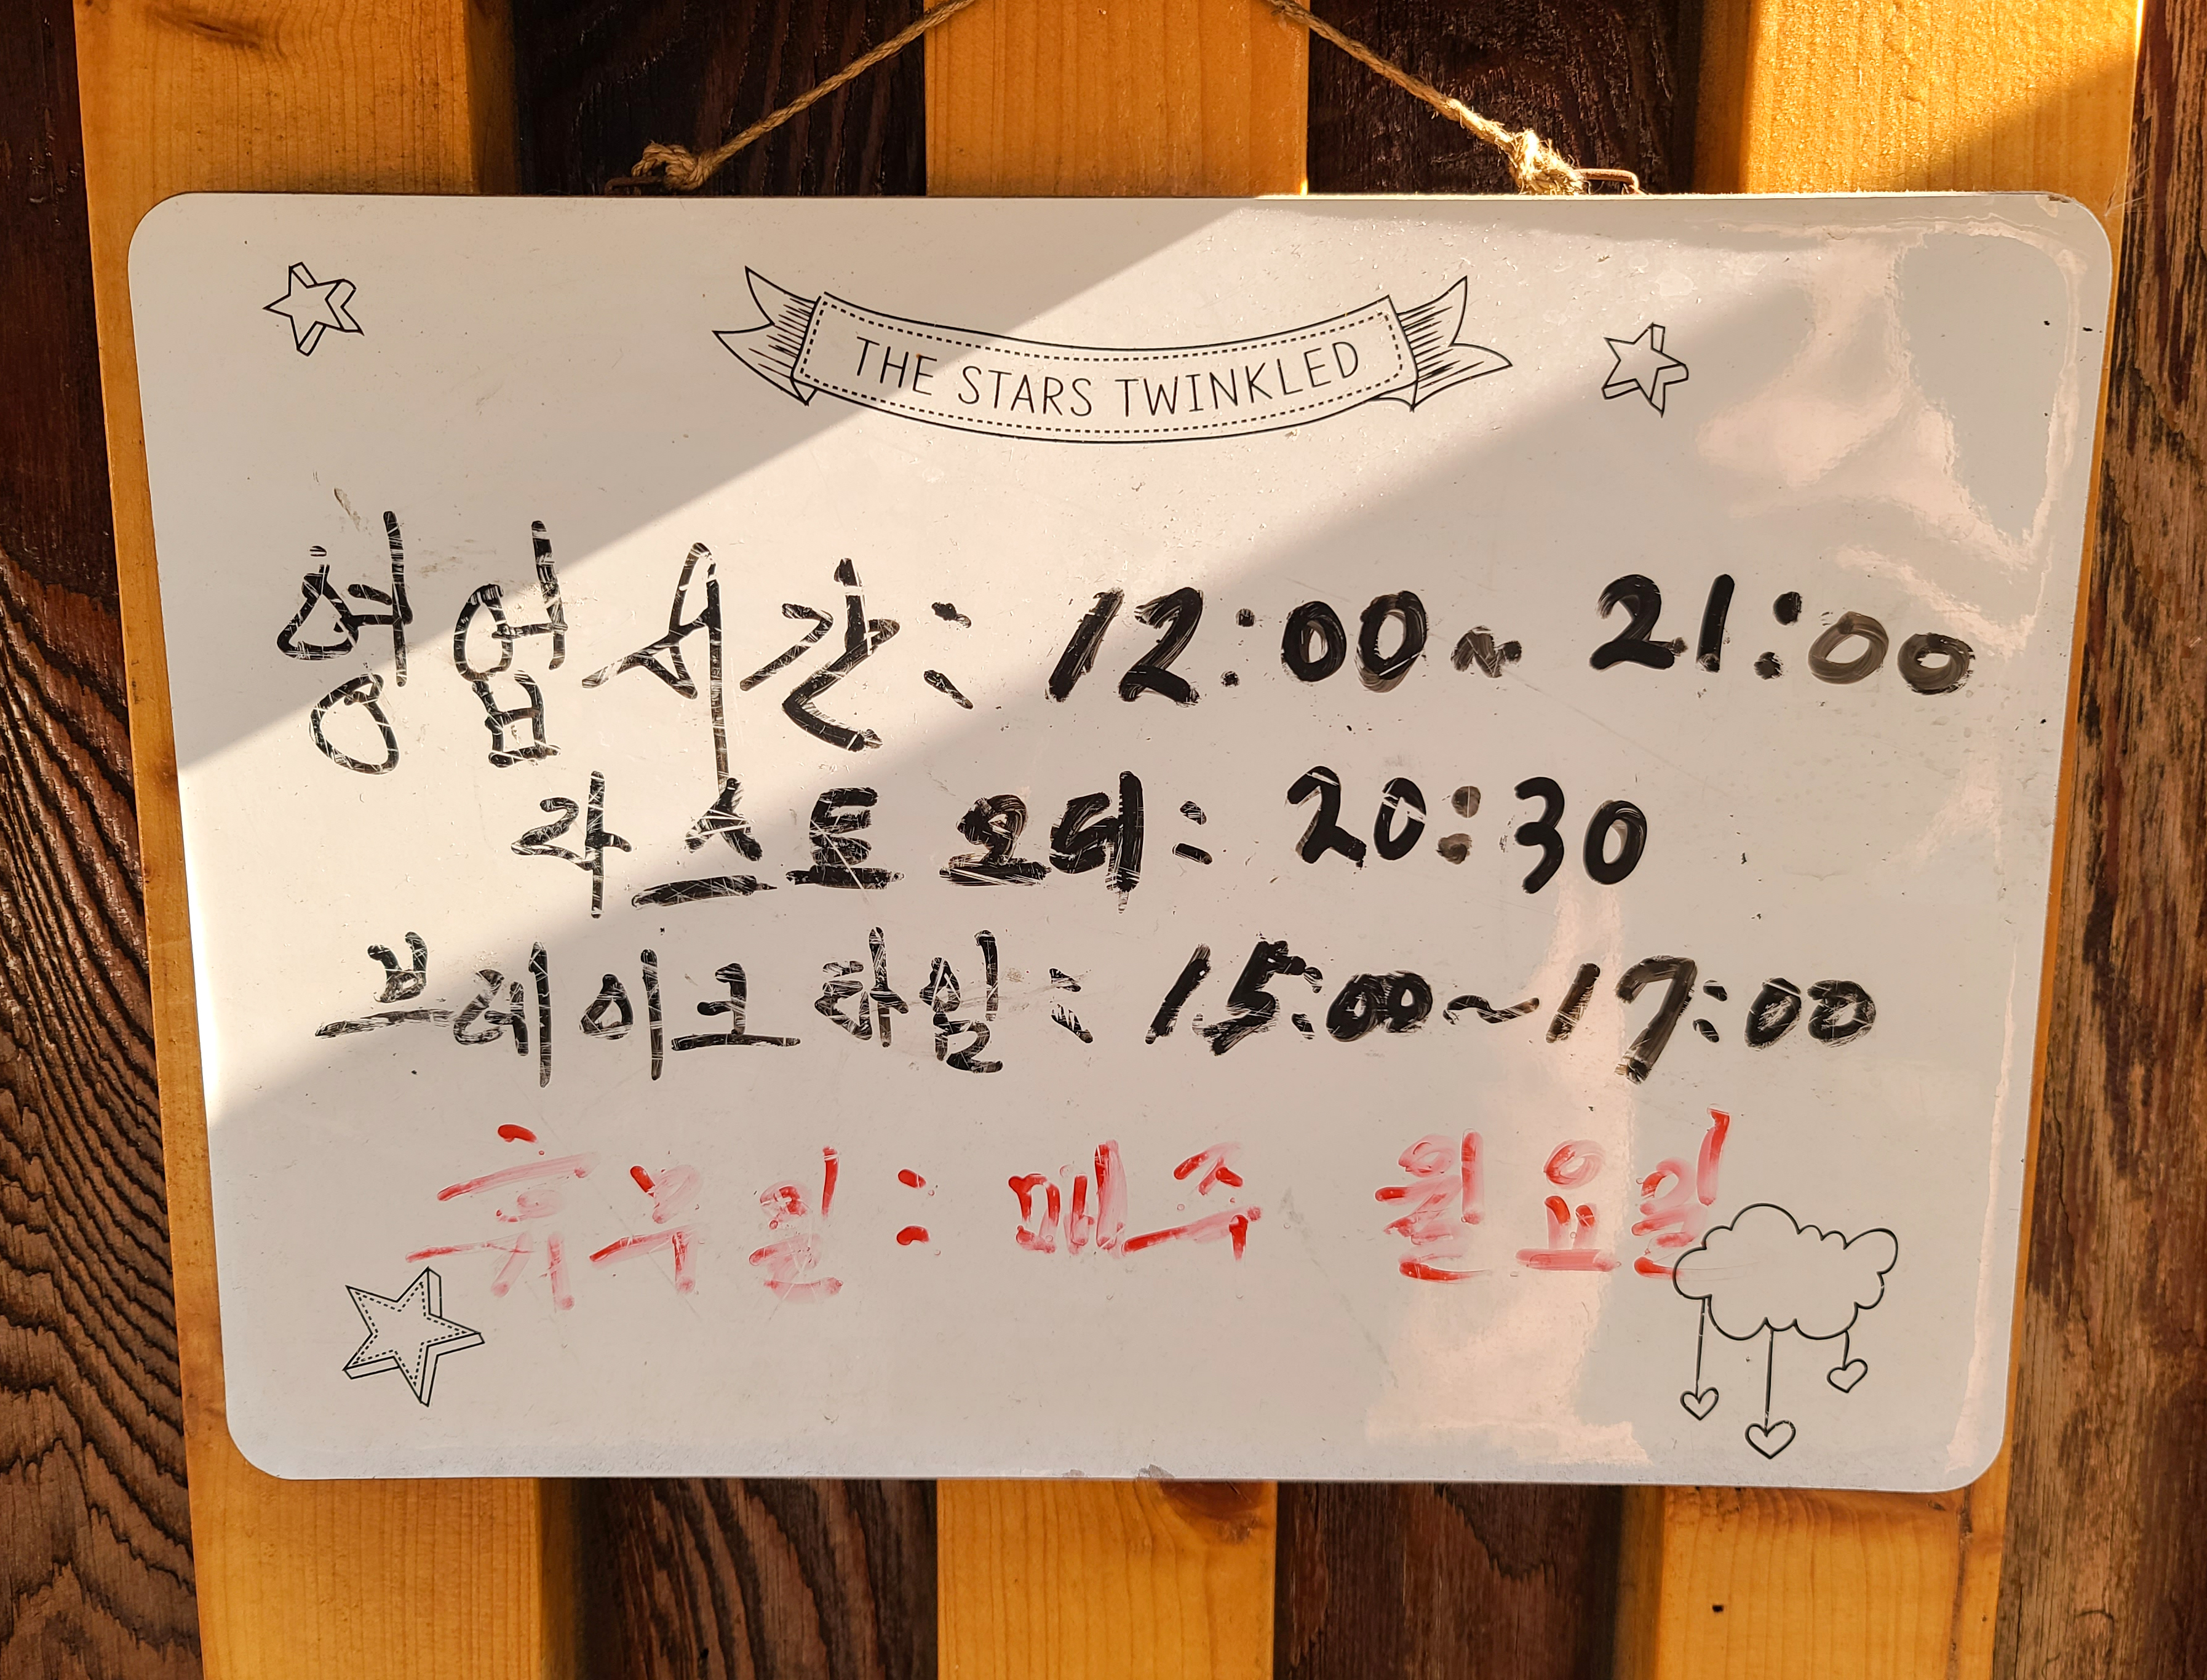 THE STARS TWINKLED
영업시간: 12:00~ 21:00
라스트 오더: 20:30
브레이크 타임: 15:00~17:00
휴무일: 매주 월요일